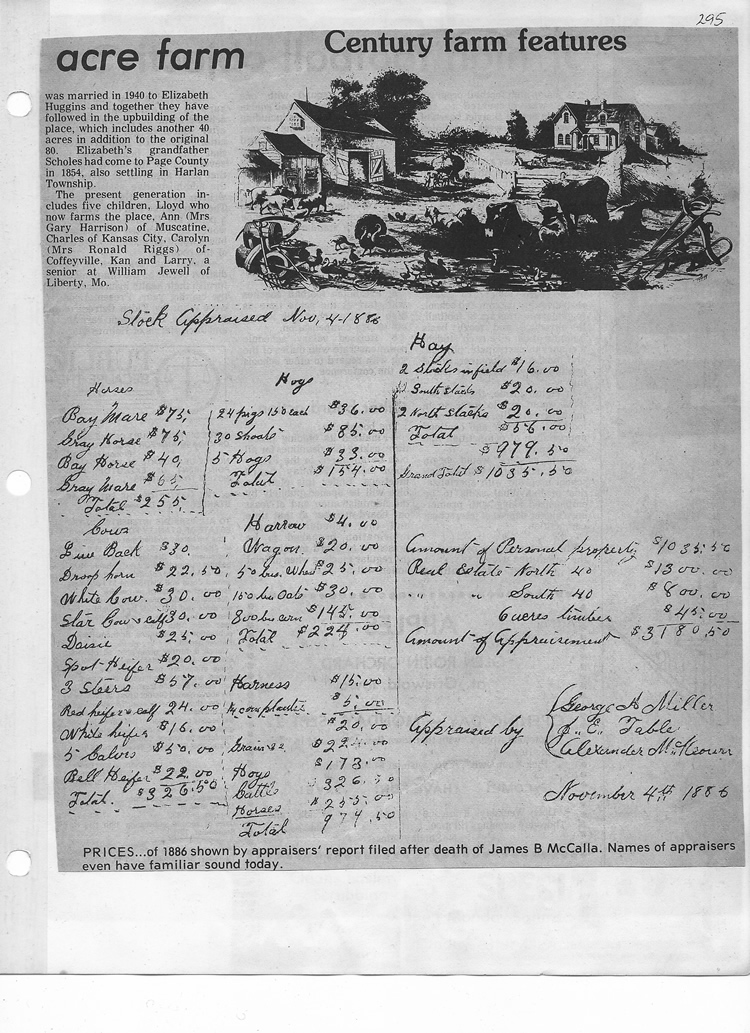 295
acre farm
Century farm features
was married in 1940 to Elizabeth
Huggins and together they have
followed in the upbuilding of the
place, which includes another 40
acres in addition to the original
80. Elizabeth's grandfather
Scholes had come to Page County
in 1854, also settling in Harlan
Township.
The present generation in-
cludes five children, Lloyd who
now farms the place, Ann (Mrs
Gary Harrison) of Muscatine,
Charles of Kansas City, Carolyn
(Mrs Ronald Riggs) of
Coffeyville, Kan and Larry, a
senior at William Jewell of
Liberty, Mo.
Stock Appraised Nov, 4-1886
Horses
Bay Mare $75,
Gray Horse $75,
Bay Horse $40,
Gray Mare $65,
Total $255,
Cows
Line Back $30,
Droop horn $22.50
White Cow. $30.00
Star Cow & calf $30.00
Daisie $25.00
Spot Heifer $20.00
3 Steers $57.00
Red heifer & calf 24.00
White heifer $16.00
5 Calves $50.00
Bell Heifer $22.00
Total. $326.50
Hogs
24 pigs 1.50 each $36.00
30 Shoats $85.00
5 Hogs $33.00
Total $154.00
Harrow $4.00
Wagon $20.00
50 bus. Wheat $25.00
150 bus Oats $30.00
800 bus corn $145.00
Total $224.00
Harness $15.00
corn planter $5.00
$20.00
Grain &c $224.00
Hogs $173.00
Cattle $326.50
Horses $255.00
Total 974.50
Hay
2 Stacks in field $16.00
South Stacks $20.00
2 North Stacks $20.00
Total $56.00
$979.50
Grand Total $1035.50
Amount of Personal property $1035.50
Real Estate North 40 $1300.00
" " South 40 $800.00
6 acres timber $45.00
Amount of Appraisement $3180.50
Appraised by
George H Miller
J. C. Table
Alexander McKeown
November 4th 1886
PRICES...of 1886 shown by appraisers' report filed after death of James B McCalla. Names of appraisers
even have familiar sound today.